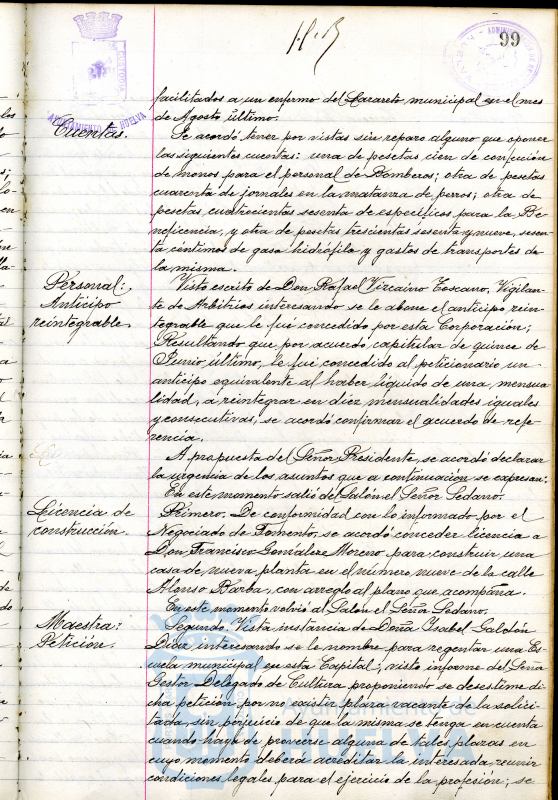 99
AYUNTAMIENTO DE HUELVA
facilitados a un enfermo del Lazareto municipal en el mes
de Agosto último.
Cuentas.
Se acordó tener por vistas sin reparo alguno que oponer
las siguientes cuentas: una de pesetas cien de confección
de monos para el personal de Bomberos; otra de pesetas
cuarenta de jornales en la matanza de perros; otra de
pesetas cuatrocientas sesenta de específicos para la Be-
neficencia, y otra de pesetas trescientas sesenta y nueve, sesen-
ta céntimos de gasa hidrófila y gastos de transportes de
la misma.
Personal:
Anticipo
reintegrable.
Visto escrito de Don Rafael Vizcaino Toscano, Vigilan-
te de Arbitrios interesando se le abone el anticipo rein-
tegrable que le fué concedido por esta Corporación;
Resultando que por acuerdo capitular de quince de
Junio último, le fué concedido al peticionario un
anticipo equivalente al haber líquido de una mensua-
lidad, a reintegrar en diez mensualidades iguales
y consecutivas, se acordó confirmar el acuerdo de refe-
rencia.
A propuesta del Señor Presidente, se acordó declarar
la urgencia de los asuntos que a continuación se expresan:
En este momento salió del Salón el Señor Sedano.
Licencia de
construcción.
Primero. De conformidad con lo informado por el
Negociado de Fomento, se acordó conceder licencia a
Don Francisco González Moreno para construir una
casa de nueva planta en el número nueve de la calle
Alonso Barba, con arreglo al plano que acompaña.
En este momento volvió al Salón el Señor Sedano.
Maestra:
Petición.
Segundo. Vista instancia de Doña Isabel
Díaz interesando se le nombre para regentar una Es-
cuela municipal en esta Capital; visto informe del Señor
Gestor Delegado de Cultura proponiendo se desestime di-
cha petición por no existir plaza vacante de la solici-
tada, sin perjuicio de que la misma se tenga en cuenta
cuando haya de proveerse alguna de tales plazas en
cuyo momento deberá acreditar la interesada reunir
condiciones legales para el ejercicio de la profesión; se
Ayuntamiento de
HUELVA